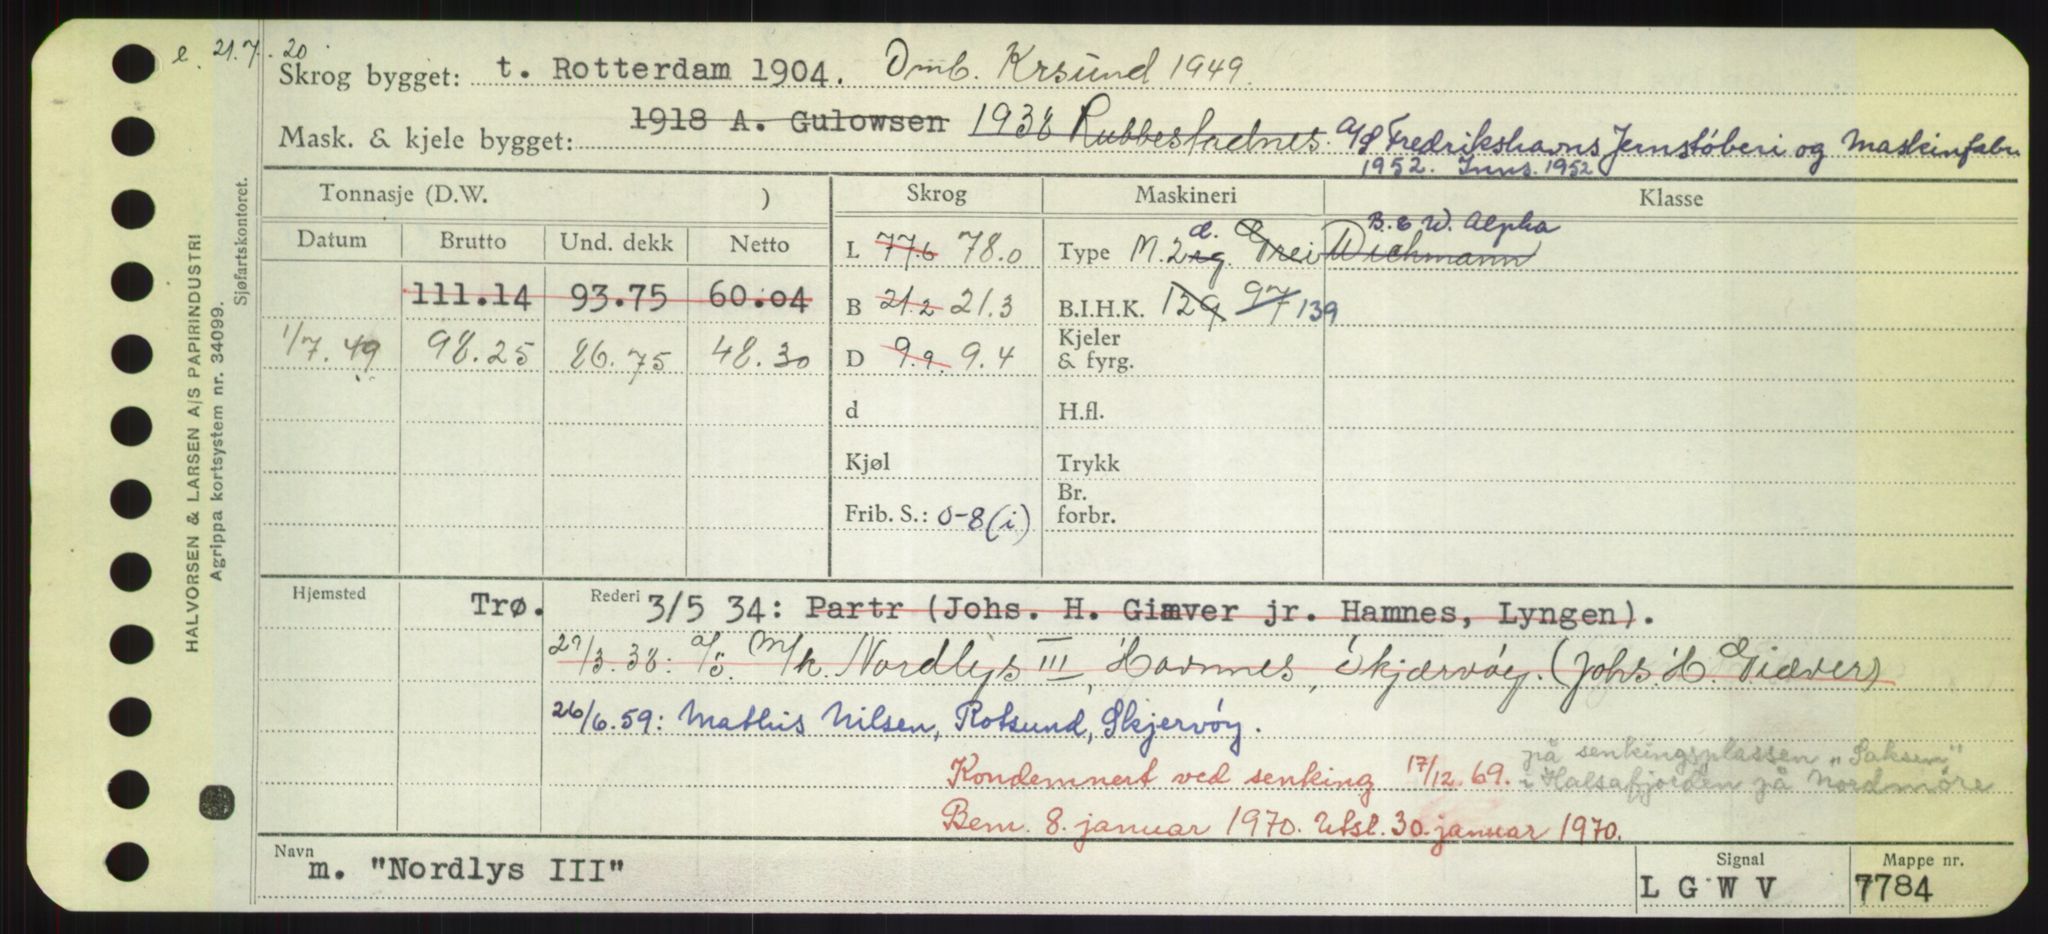 e. 21.7.20
Skrog bygget: t. Rotterdam 1904. Omb. Krsund 1949.
Mask. & kjele bygget: 1918 A. Gulowsen 1938 Rubbestadnes. A/S Fredrikshavns Jernstøberi og Maskinfabr
1952. Inns. 1952
HALVORSEN & LARSEN A/S PAPIRINDUSTRI
Agrippa kortsystem nr. 34099. Sjøfartskontoret.
Tonnasje (D.W. ) Skrog Maskineri Klasse
Datum Brutto Und. dekk Netto
L 77.6 78.0 Type M. 2 eg. d. Grei Wichmann B. & W. Alpha
111.14 93.75 60.04 B 21.2 21.3 B.I.H.K. 129 97 139
1/7.49 98.25 86.75 48.30 D 9.9. 9.4 Kjeler & fyrg.
d H.fl.
Kjøl Trykk
Frib. S.: 0-8 (i) Br. forbr.
Hjemsted Trø. Rederi 3/5 34: Partr (Johs. H. Giæver jr. Hamnes, Lyngen).
29/3.38: A/S M/k. Nordlys III, Havnnes, Skjærvøy. (Johs. H. Giæver)
26/6.59: Mathis Nilsen, Rotsund, Skjervøy.
Kondemnert ved senking 17/12.69. på senkingsplassen "Saksen"
i Halsafjorden på Nordmøre
Bem. 8. januar 1970. Utsl. 30. januar 1970.
Navn m. "Nordlys III" Signal L G W V Mappe nr. 7784